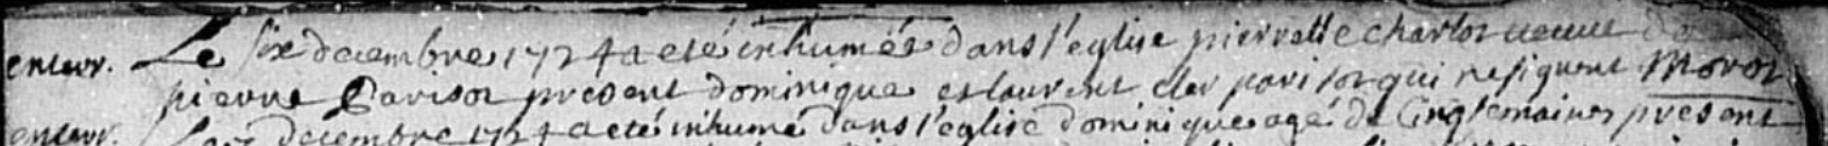 enterr. Le six decembre 1724 a eté inhumée dans l'eglise pierrette charlot veuve de
pierre Parisot present dominique et laurent les parisot qui ne signent Morot
enterr. decembre 1724 a eté inhumé dans l'eglise dominique agé de cinq semaines present